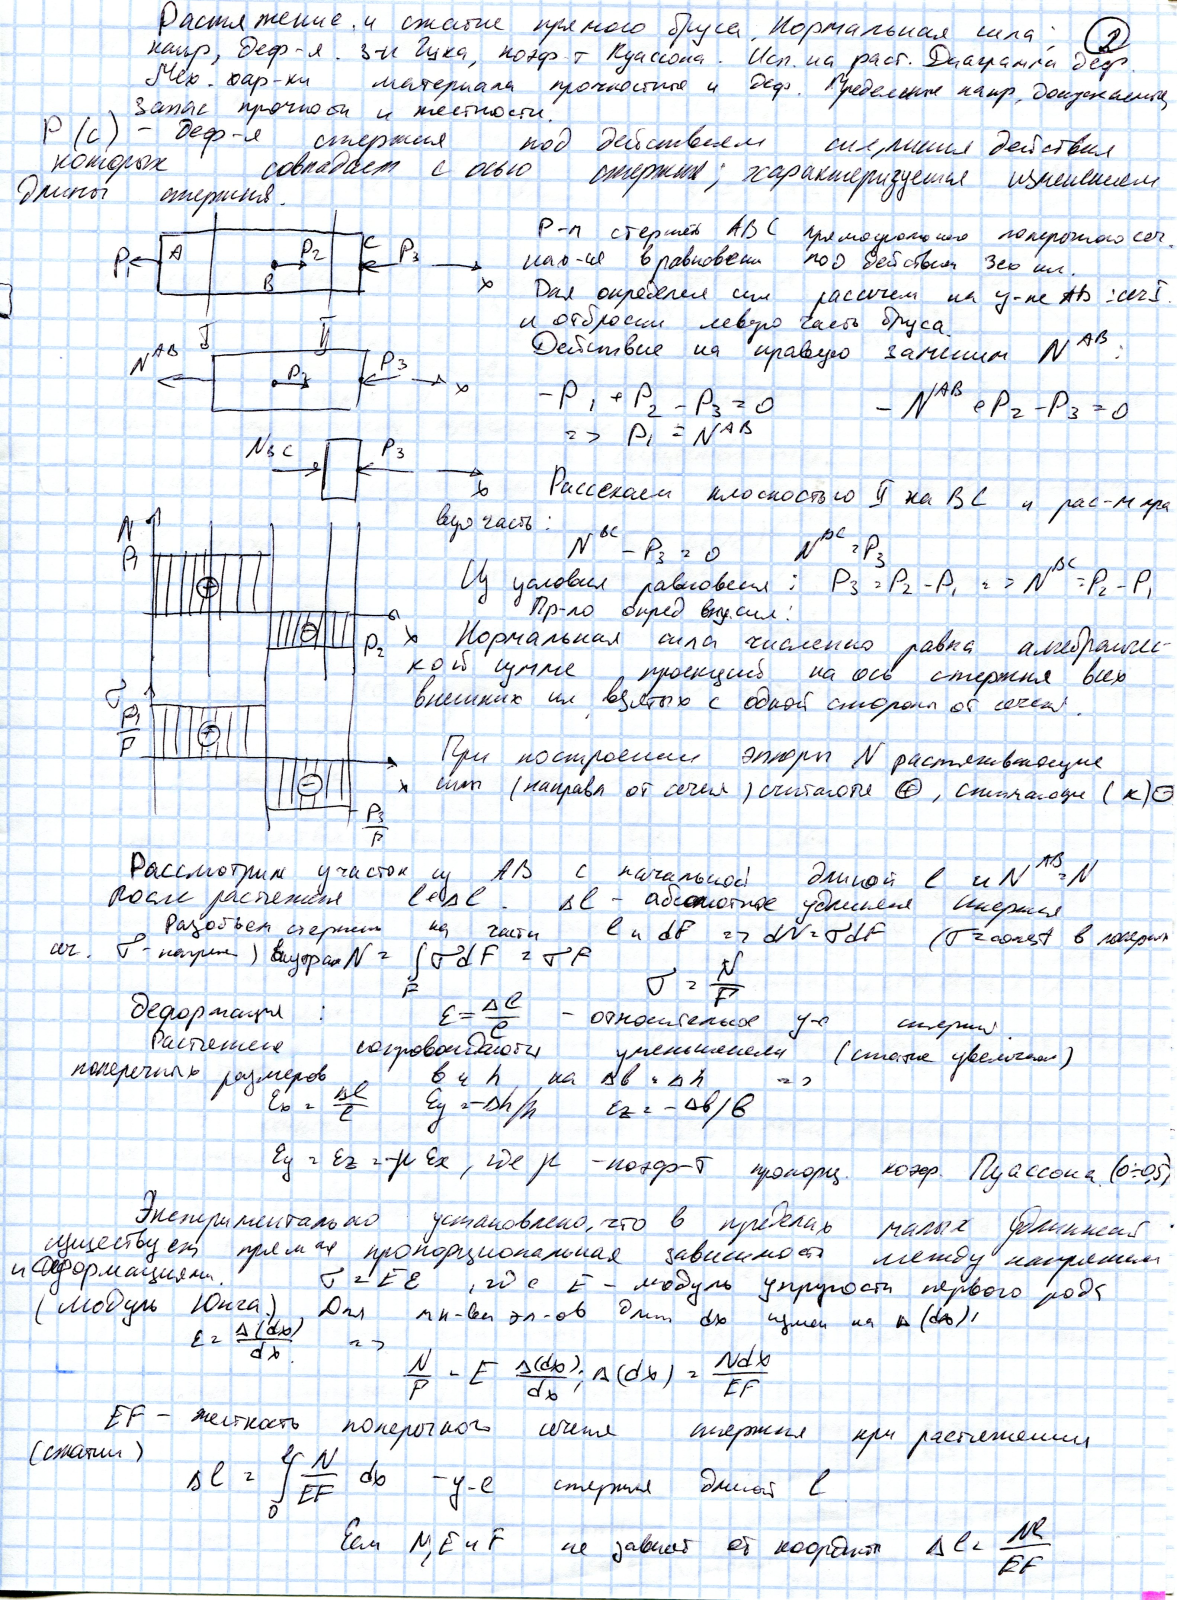 Растяжение и сжатие прямого бруса. Нормальная сила; 2
напр, деф-я. з-н Гука, коэф-т Пуассона. Исп. на раст. Диаграмма деф.
Мех. хар-ки материала прочностные и деф. Предельные напр, допускаемые,
запас прочности и жесткости.
Р(с) - деф-я стержня под действием сил, линия действия
которых совпадает с осью стержня; характеризуется изменением
длины стержня.
Р-м стержень АВС прямоугольного поперечного сеч.
нах-ся в равновесии под действием 3ех сил.
Для определен сил рассечем на у-ке АВ : сеч I.
и отбросим левую часть бруса.
Действие на правую заменим N^AB:
P1 A B P2 C P3 x
I II
N^AB P2 P3 x
-P1 + P2 - P3 = 0 -N^AB + P2 - P3 = 0
=> P1 = N^AB
NBC P3 x
Рассекаем плоскостью II на ВС и рас-м пра
вую часть:
N^BC - P3 = 0 N^BC = P3
Из условия равновесия: P3 = P2 - P1 => N^BC = P2 - P1
Пр-ло опред вн. сил:
N P1 + - P2 x
Нормальная сила численно равна алгебраичес-
кой сумме проекций на ось стержня всех
внешних сил, взятых с одной стороны от сечения.
σ P1/F + - P3/F x
При построении эпюры N растягивающие
силы (направл от сечен) считаются +, сжимающие (к) -
Рассмотрим участок из АВ с начальной длиной l и N^AB = N
После растяжения l+Δl. Δl - абсолютное удлинение стержня
Разобьем стержень на части l и dF => dN = σdF (σ = const в попереч
сеч. σ - напряж) N = ∫F σdF = σF
σ = N/F
Деформация: ε = Δl/l - относительное у-е стержня.
Растяжение сопровождается уменьшением (сжатие увеличен)
поперечных размеров b и h на Δb и Δh =>
εx = Δl/l εy = -Δh/h εz = -Δb/b
εy = εz = -μεx, где μ - коэф-т пропорц. коэф. Пуассона (0÷0,5)
Экспериментально установлено, что в пределах малых удлинений
существует прямая пропорциональная зависимость между напряжен
и деформациями. σ = Eε, где E - модуль упругости первого рода
(модуль Юнга) Для эл-ов длин dx измен на Δ(dx),
ε = Δ(dx)/dx =>
N/F = E Δ(dx)/dx; Δ(dx) = Ndx/EF
EF - жесткость поперечного сечения стержня при растяжении
(сжатии)
Δl = ∫0^l N/EF dx - у-е стержня длиной l
Если N, E и F не зависят от координаты Δl = Nl/EF